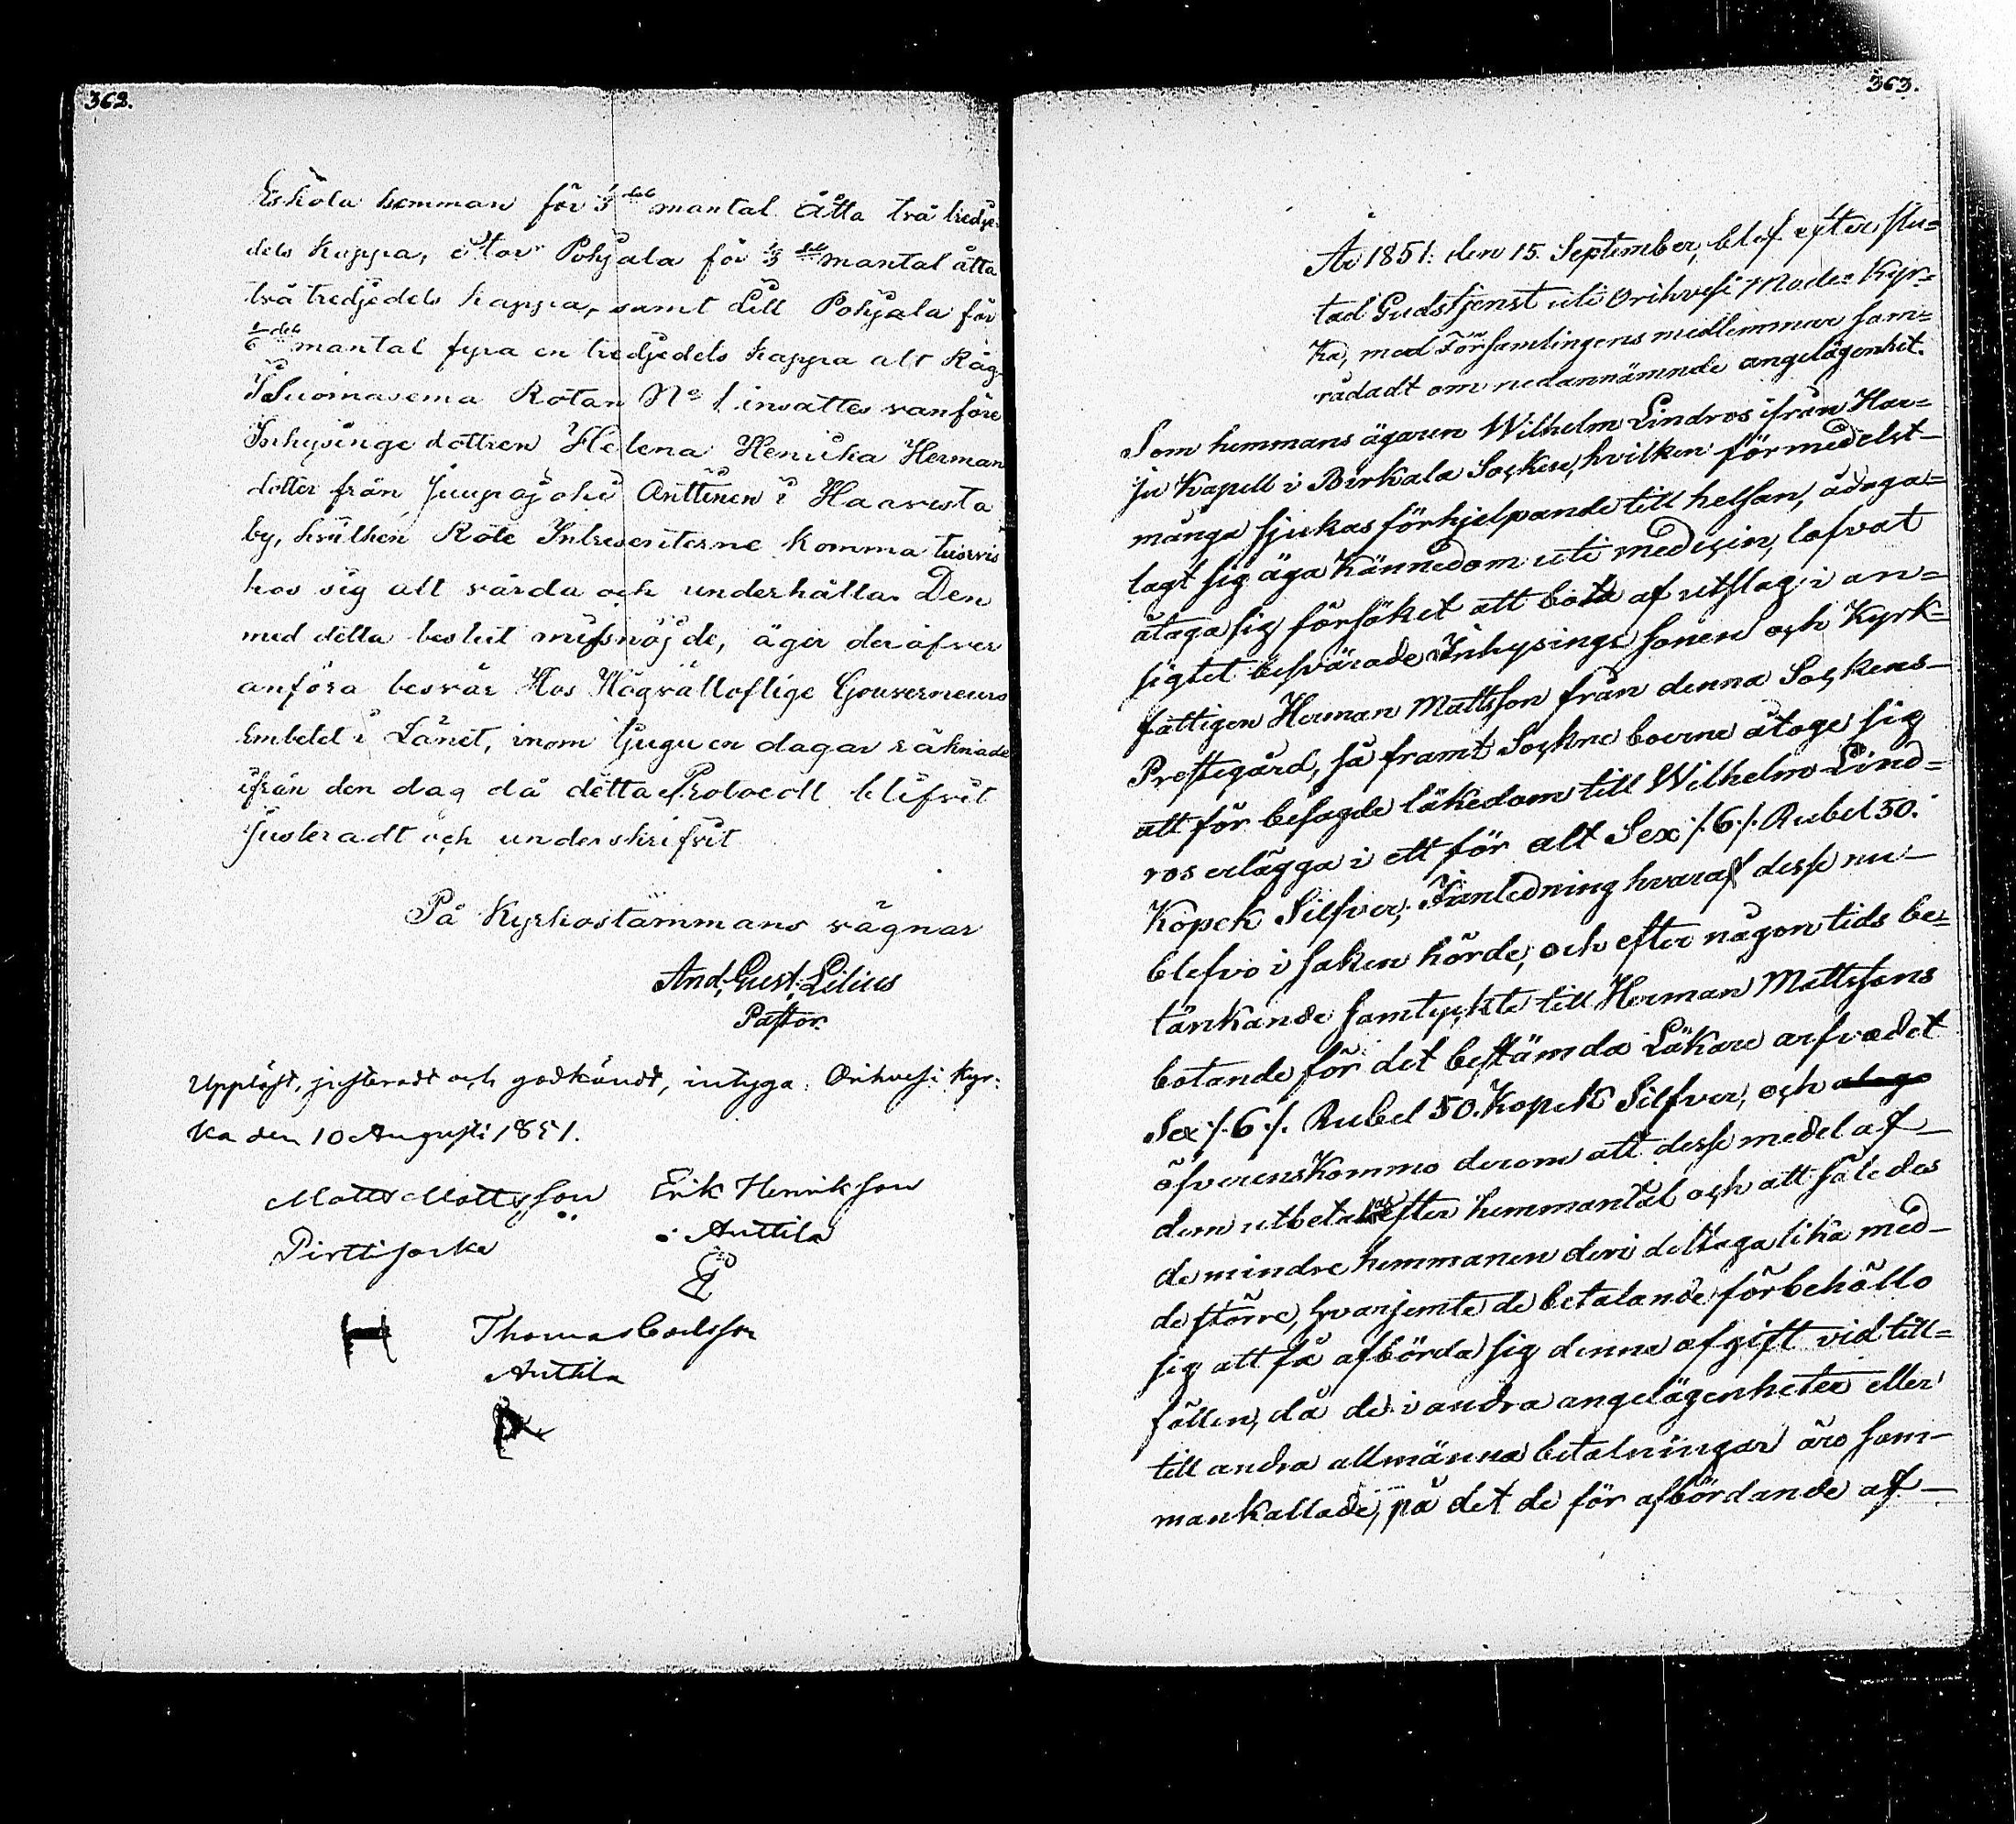 362.
Eskola hemman för 1/3 del mantal åtta två tredje-
dels kappa, Stor Pohjala för 1/3 del mantal åtta
två tredjedels kappa, samt Lill Pohjala för
1/6 del mantal fyra en tredjedels kappa alt Råg.
I Suomasema Rotan No 1 insattes vanföre
Inhysinge dottren Helena Henrika Herman
dotter från Juupajoki Anttinen i Haavisto
by, hvilken Rote Intresenterne komma turvis
hos sig att vårda och underhålla. Den
med detta beslut missnöjde, äger deröfver
anföra besvär Hos Högvälloflige Gouverneurs
Embetet i Länet, inom tjuguen dagar räknade
ifrån den dag då detta Protocoll blifvit
Justeradt och underskrifvit
På Kyrkostämmans vägnar
And. Gust. Lilius
Pastor.
Uppläst, justeradt och godkändt, intyga. Orihvesi Kyr-
ka den 10 Augusti 1851.
Matts Mattsson Erik Henriksson
Pirttijorka Anttila
Thomas Carlsson
Anttila
363.
År 1851. den 15. September, blef efter slu=
tad Gudstjenst uti Orihvesi Moder Kyr=
ka, med Församlingens medlemmar sam=
rådadt om nedannämnde angelägenhet.
Som hemmans ägaren Wilhelm Lindros ifrån Har=
ju Kapell i Birkala Socken, hvilken förmedelst
många sjukas förhjelpande till helsan, ådaga=
lagt sig äga Kännedom uti medicin, lofvat
åtaga sig försöket att bota af utslag i an=
sigtet besvärade Inhysinge sonen och Kyrk=
fattigen Herman Mattsson från denna Sockens
Prestegård, så framt Sockne boerne åtoge sig
att för besagde läkedom till Wilhelm Lind=
ros erlägga i ett för alt Sex /:6:/ Rubel 50.
Kopek Silfver; I anledning hvaraf desse nu
blefvo i saken hörde, och efter någon tids be=
tänkande samtyckte till Herman Mattssons
botande för det bestämda Läkare arfvodet
Sex /:6:/ Rubel 50. Kopek Silfver, och
öfverenskommo derom att desse medel af
dem utbetalas efter hemmantal och att således
de mindre hemmanen deri deltaga lika med
de större, hvarjemte de betalande förbehöllo
sig att få afbörda sig denna afgift vid till=
fällen, då de i andra angelägenheter eller
till andra allmänna betalningar äro sam-
mankallade, på det de för afbördande af